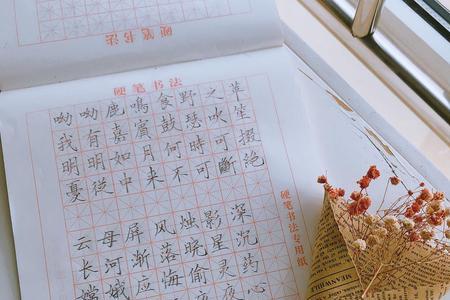 硬笔书法
硬笔书法
呦呦鹿鸣食野之苹
我有嘉宾鼓瑟吹笙
明明如月何时可掇
憂從中来不可斷绝
云母屏风烛影深
长河渐落晓星沉
嫦娥应悔偷灵药
夜心
硬笔书法专用纸
MEANWHILE